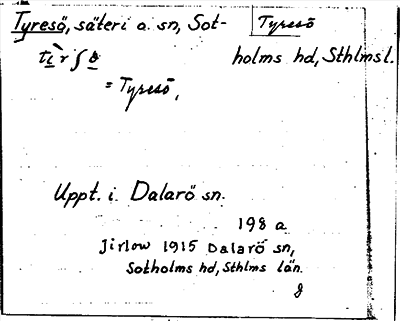 Tyresö, säteri a. sn, Sot-
Tyresö
holms hd, Sthlms l.
= Tyresö,
Uppt. i Dalarö sn.
198 a
Jirlow 1915 Dalarö sn,
Sotholms hd, Sthlms län.